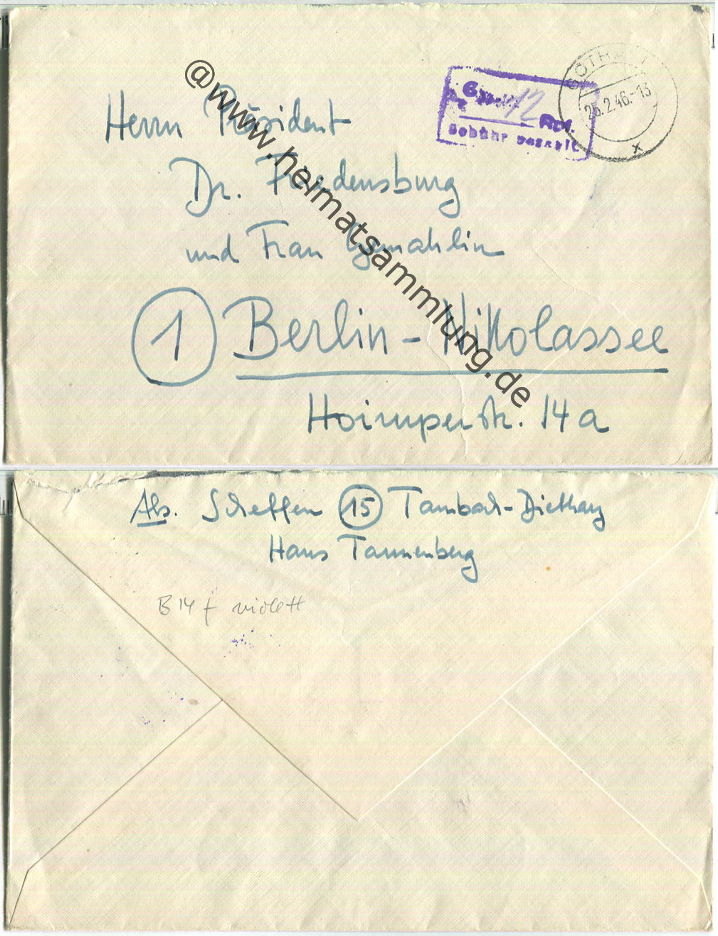 @www.heimatsammlung.de
12 Rpf.
Gebühr bezahlt
GOTHA
25.2.46.-13
x
Herrn Präsident
Dr. Friedensburg
und Frau Gemahlin
1 Berlin-Nikolassee
14a
Abs. Scheffen 15 Tambach-Dietharz
Haus Tannenberg
B14 f violett